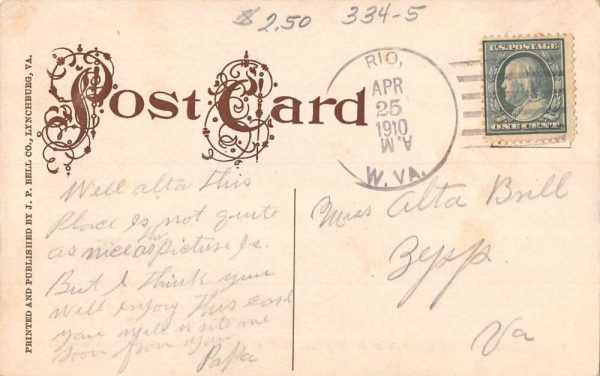 $2.50 334-5
PRINTED AND PUBLISHED BY J. P. BELL CO., LYNCHBURG, VA.
Post Card
RIO,
APR
25
1910
A.M.
W. VA.
U.S. POSTAGE
ONE CENT
Well alta this
Place is not quite
as nice as the picture Is.
But I think your
will enjoy this card
you will write me
soon from your
Papa
Miss Alta Brill
Zepp
Va